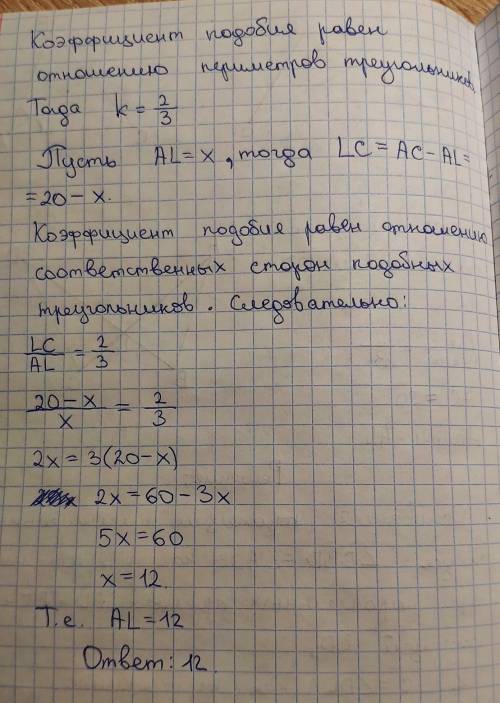 Коэффициент подобия равен
отношению периметров треугольников.
Тогда k = 2/3
Пусть AL = x, тогда LC = AC - AL =
= 20 - x.
Коэффициент подобия равен отношению
соответственных сторон подобных
треугольников. Следовательно:
LC/AL = 2/3
20 - x/x = 2/3
2x = 3(20 - x)
2x = 60 - 3x
5x = 60
x = 12.
Т.е. AL = 12
Ответ: 12.